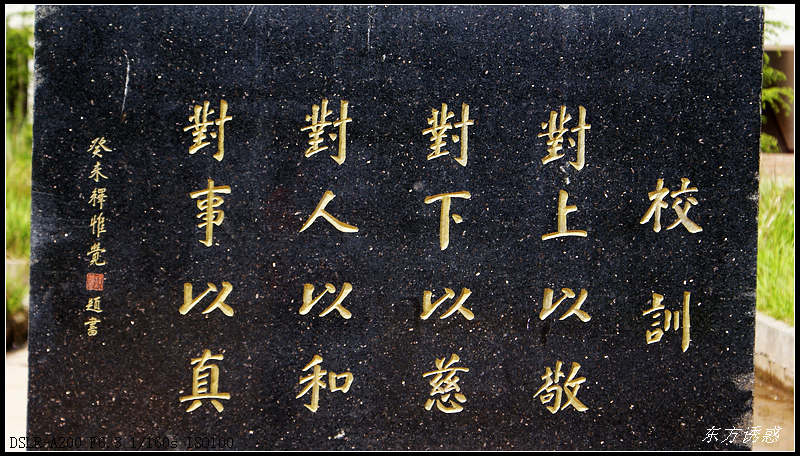 校訓
對上以敬
對下以慈
對人以和
對事以真
癸未釋惟覺題書
东方诱惑